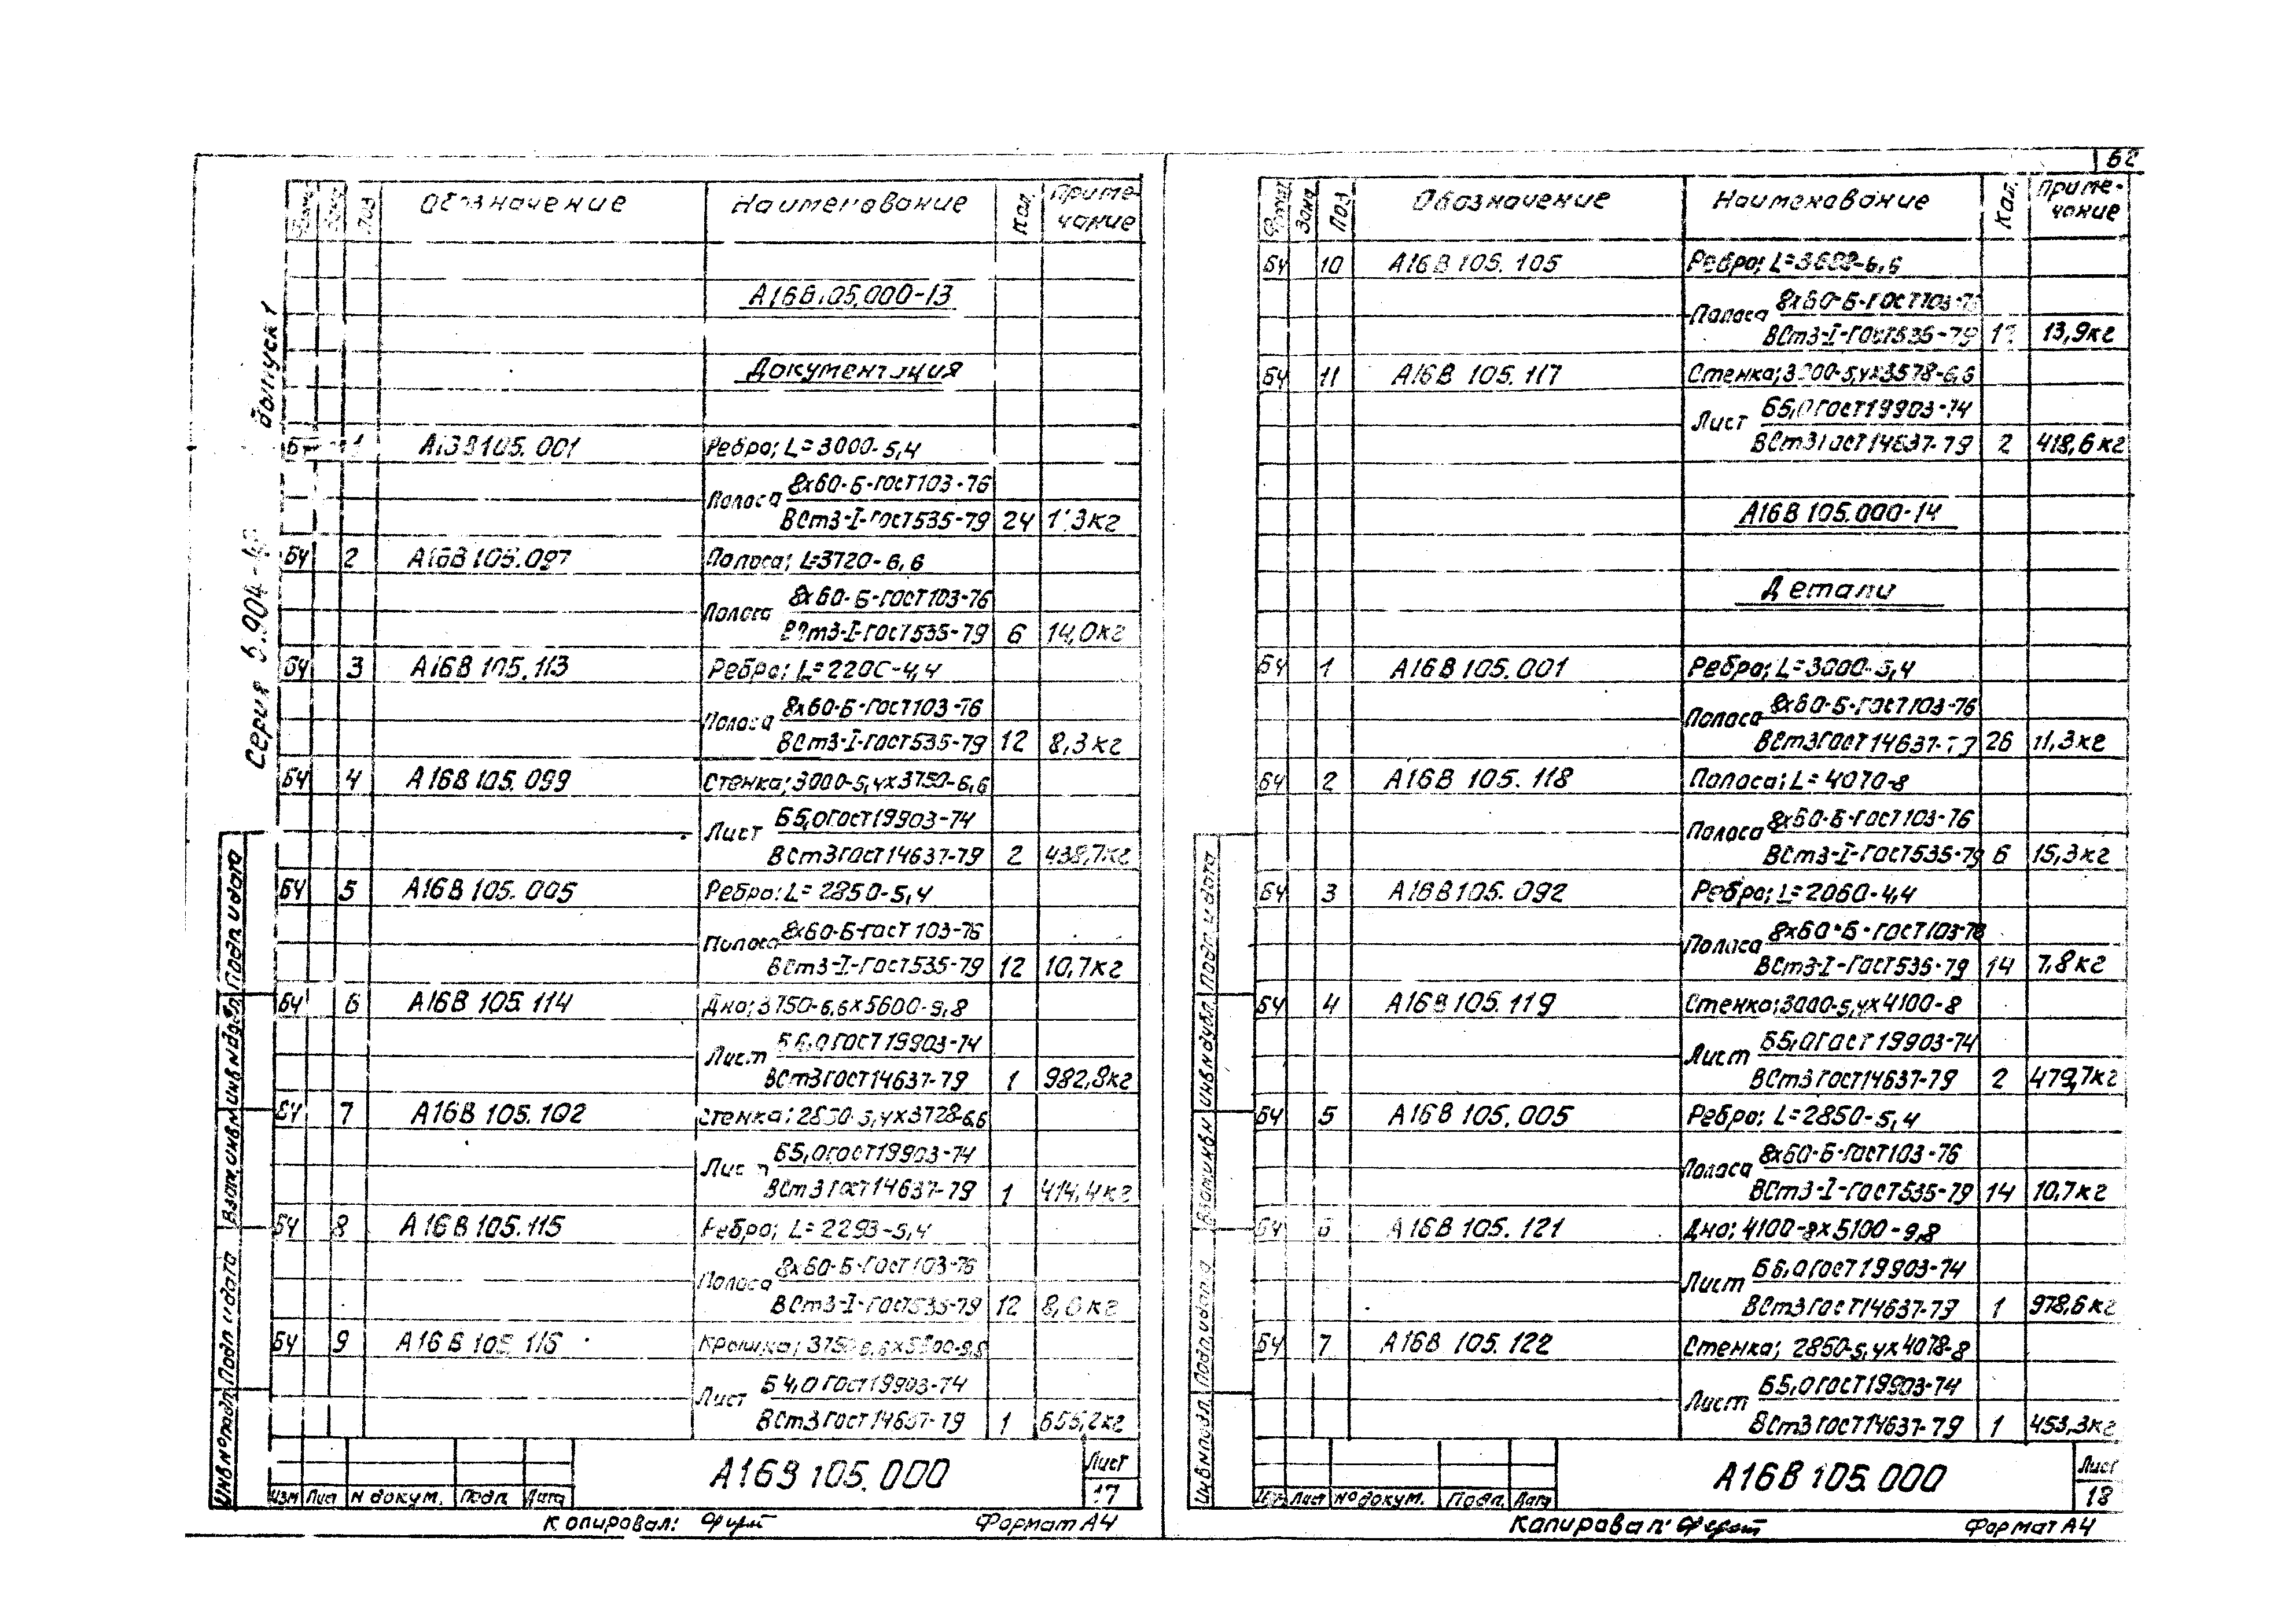 62
Обозначение Наименование Кол. Приме-
чание
А16В105.000-13
Документация
1 105.001 Ребро; L=3000-5,4
Полоса 8х60-Б-ГОСТ103-76
ВСт3-I-ГОСТ535-79 24 кг
БЧ 2 А16В 105.097 Полоса; L=3720-6,6
Полоса 8х60-Б-ГОСТ103-76
ВСт3-I-ГОСТ535-79 6 14,0кг
БЧ 3 А16В 105.113 Ребро; L=2200-4,4
Полоса 8х60-Б-ГОСТ103-76
ВСт3-I-ГОСТ535-79 12 8,3кг
БЧ 4 А16В 105.099 Стенка; 3000-5,4х3750-6,6
Лист Б5,0ГОСТ19903-74
ВСт3ГОСТ14637-79 2 438,7кг
БЧ 5 А16В 105.005 Ребро: L=2850-5,4
Полоса 8х60-Б-ГОСТ 103-76
ВСт3-I-ГОСТ535-79 12 10,7кг
БЧ 6 А16В 105.114 Дно; 3750-6,6х5600-9,8
Лист Б6,0ГОСТ19903-74
ВСт3ГОСТ14637-79 1 982,8кг
БЧ 7 А16В 105.102 Стенка; 2850-5,4х3728-6,6
Лист Б5,0ГОСТ19903-74
ВСт3ГОСТ14637-79 1 414,4кг
БЧ 8 А16В 105.115 Ребро; L=2293-5,4
Полоса 8х60-Б-ГОСТ103-76
ВСт3-I-ГОСТ535-79 12 8,6кг
БЧ 9 А16В 105.116 Крышка;
Лист Б4,0ГОСТ19903-74
ВСт3ГОСТ14637-79 1
Изм Лист N докум. Подп. Дата
А16В 105.000
Лист
17
Копировал: Формат А4
Серия выпуск 1
Инв№подл. Подп. и дата Взам.инв№ Инв№дубл. Подп. и дата
Форм Зона Поз Обозначение Наименование Кол. Приме-
чание
БЧ 10 А16В 105.105 Ребро; L=3688-6,6
Полоса 8х60-Б-ГОСТ103-76
ВСт3-I-ГОСТ535-79 13,9кг
БЧ 11 А16В 105.117 Стенка; 3000-5,4х3578-6,6
Лист Б5,0ГОСТ19903-74
ВСт3ГОСТ14637-79 2 418,6кг
А16В 105.000-14
Детали
БЧ 1 А16В 105.001 Ребро; L=3000-5,4
Полоса 8х60-Б-ГОСТ103-76
ВСт3ГОСТ14637-79 26 11,3кг
БЧ 2 А16В 105.118 Полоса; L=4070-8
Полоса 8х60-Б-ГОСТ103-76
ВСт3-I-ГОСТ535-79 6 15,3кг
БЧ 3 А16В105.092 Ребро; L=2060-4,4
Полоса 8х60-Б-ГОСТ103-76
ВСт3-I-ГОСТ535-79 14 7,8кг
БЧ 4 А16В 105.119 Стенка; 3000-5,4х4100-8
Лист Б5,0ГОСТ19903-74
ВСт3ГОСТ14637-79 2 479,7кг
БЧ 5 А16В 105.005 Ребро; L=2850-5,4
Полоса 8х60-Б-ГОСТ103-76
ВСт3-I-ГОСТ535-79 14 10,7кг
БЧ 6 А16В 105.121 Дно; 4100-8х5100-9,8
Лист Б6,0ГОСТ19903-74
ВСт3ГОСТ14637-79 1 978,6кг
БЧ 7 А16В 105.122 Стенка; 2850-5,4х4078-8
Лист Б5,0ГОСТ19903-74
ВСт3ГОСТ14637-79 1 453,3кг
Лист №докум. Подп. Дата
А16В 105.000
Лист
18
Копировал: Формат А4
Инв№подл. Подп.и дата Взам.инв№ Инв№дубл. Подп и дата